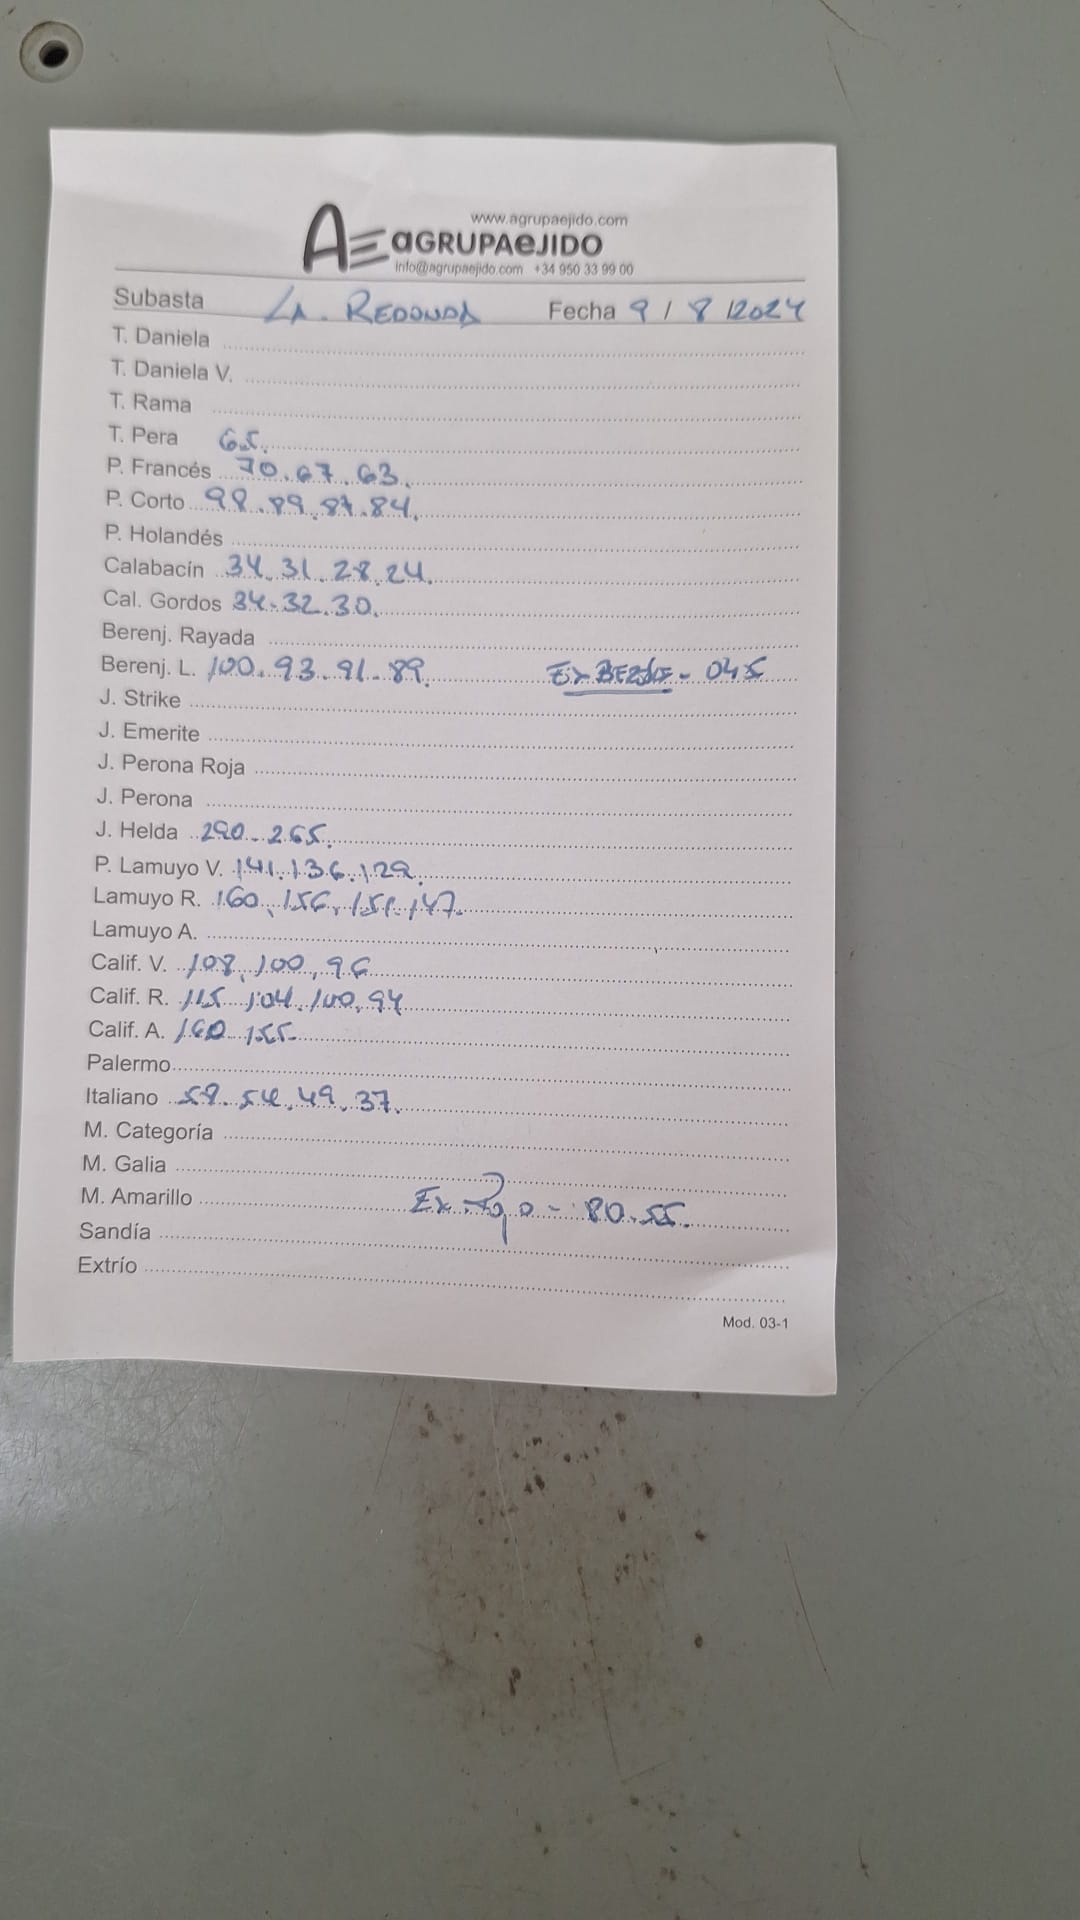 www.agrupaejido.com
AE aGRUPAeJIDO
info@agrupaejido.com +34 950 33 99 00
Subasta LA. REDONDA Fecha 9 / 8 /2024
T. Daniela
T. Daniela V.
T. Rama
T. Pera 65.
P. Francés 70.67.63.
P. Corto 98.89.87.84.
P. Holandés
Calabacín 34.31.28.24.
Cal. Gordos 34.32.30.
Berenj. Rayada
Berenj. L. 100.93.91.89. - 045
J. Strike
J. Emerite
J. Perona Roja
J. Perona
J. Helda 290.265.
P. Lamuyo V. 141.136.129.
Lamuyo R. 160.156.151.147.
Lamuyo A.
Calif. V. 108,100,96
Calif. R. 115.104.100.94
Calif. A. 160.155.
Palermo
Italiano 58.54.49.37.
M. Categoría
M. Galia
M. Amarillo Ex. - 80.55.
Sandía
Extrío
Mod. 03-1